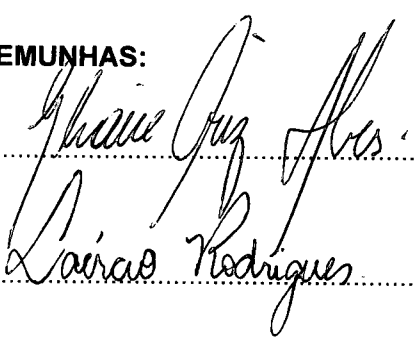 EMUNHAS:
Cruz Alves
Laércio Rodrigues